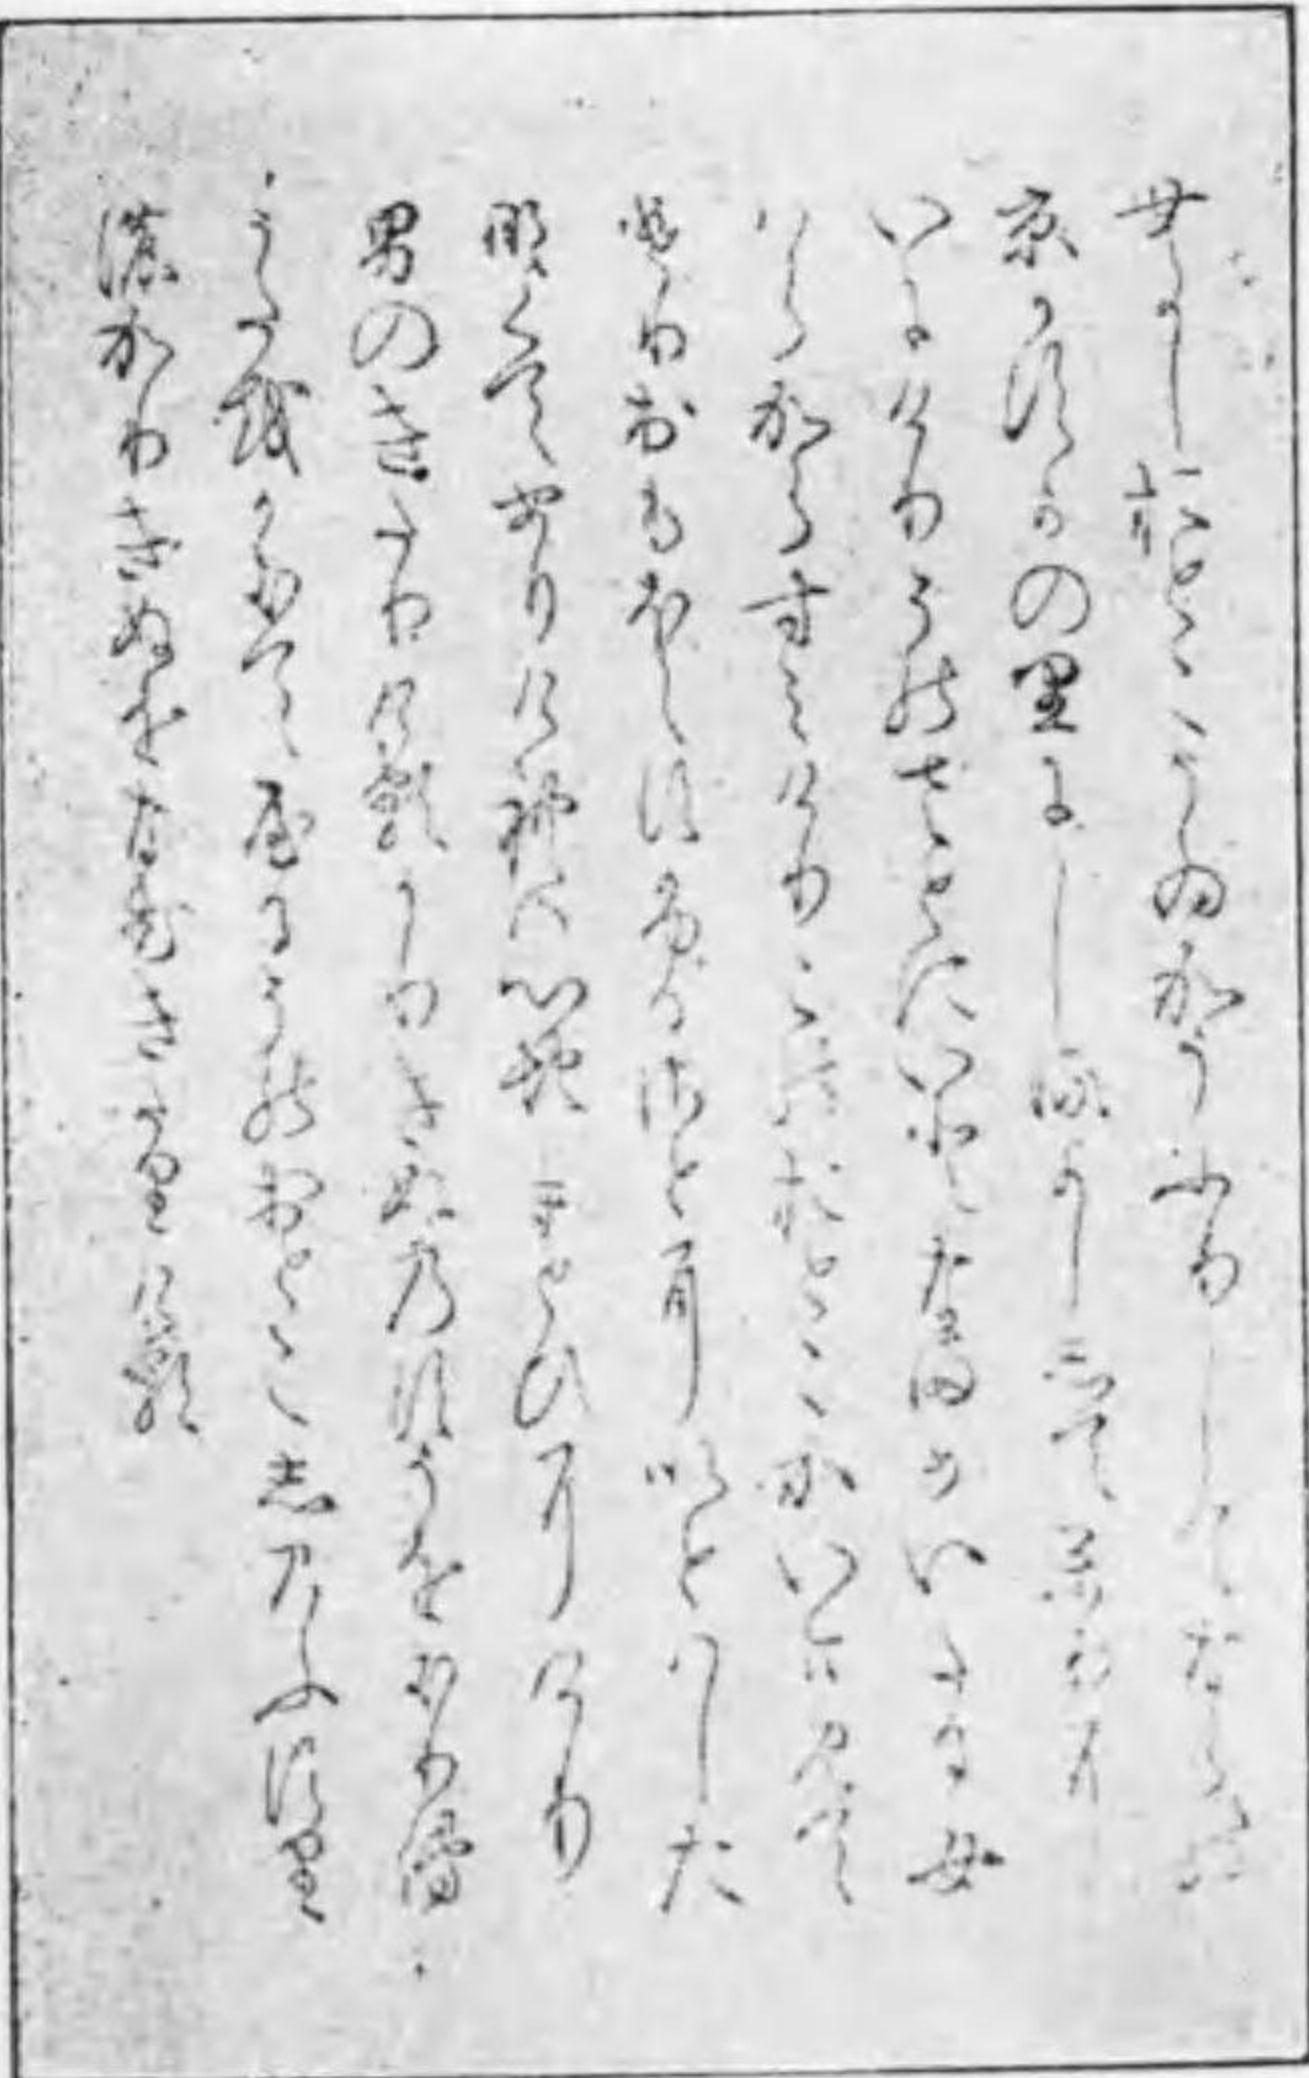 むかしおとこうゐかうふりしてならの
京かすかの里にしるよしゝてかりに
いにけりそのさとにいとなまめいたる女
はらからすみけりこのおとこかいまみて
けりおもほえすふるさとにいとはした
なくてありけれは心地まとひにけり
男のきたりけるかりきぬのすそをきりて
うたをかきてやるそのおとこしのふすり
のかりきぬをなむきたりける